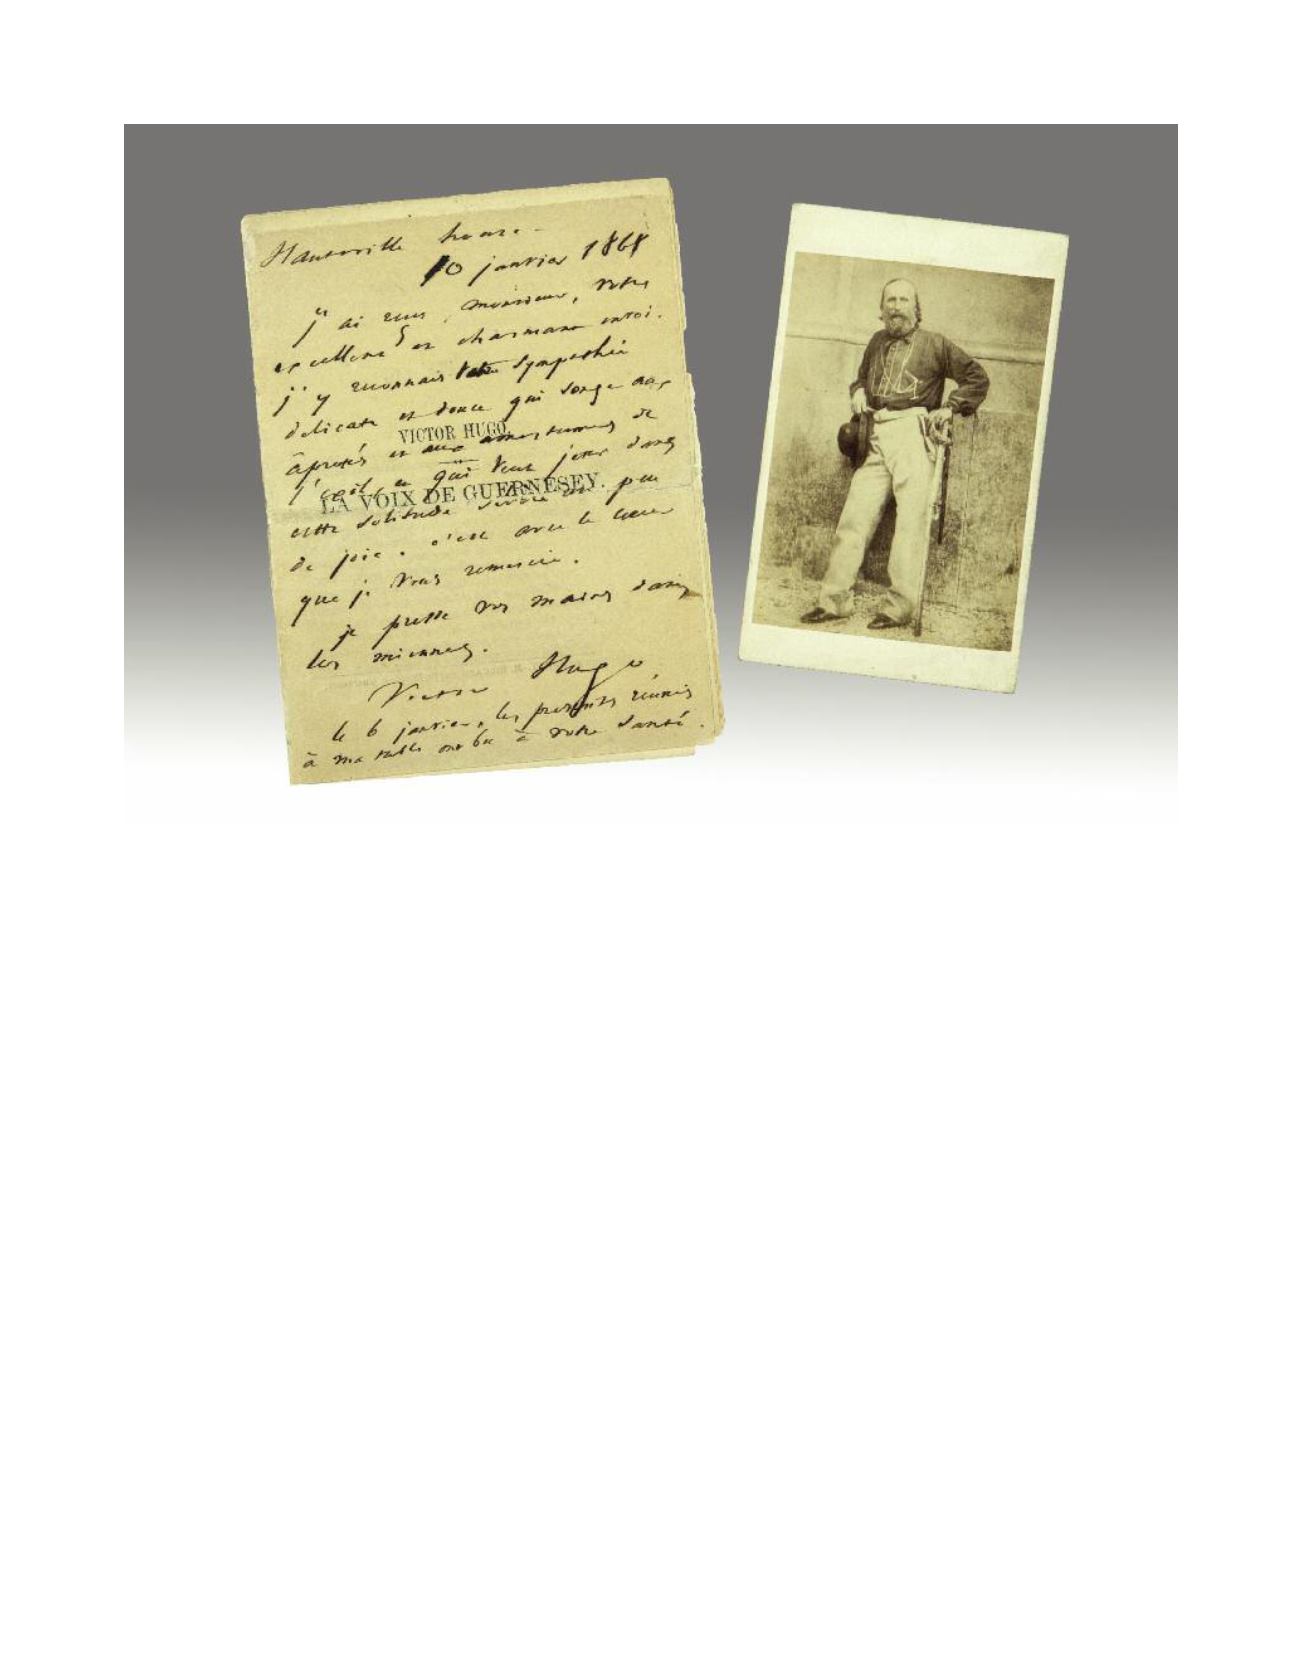 Hauteville house -
10 janvier 1868
j'ai reçu, monsieur, votre
excellent et charmant envoi.
j'y reconnais votre sympathie
délicate et douce qui songe aux
VICTOR HUGO
âpretés et aux amertumes de
l'exil, et qui veut jeter dans
LA VOIX DE GUERNESEY.
cette solitude sévère un peu
de joie. c'est avec le cœur
que je vous remercie.
je presse vos mains dans
les miennes.
Victor Hugo
le 6 janvier, les proscrits réunis
à ma table ont bu à votre santé.